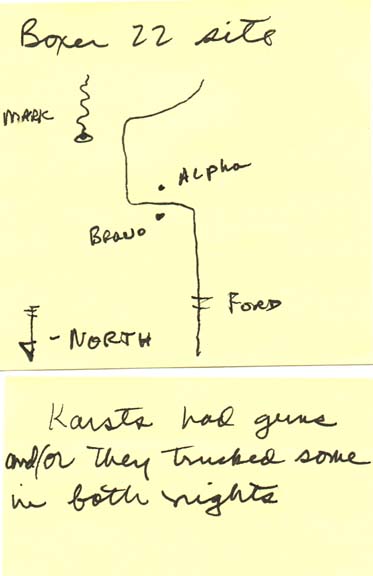 Boxer 22 site
MARK
ALPha
BRAVO
FORD
- NORTH
Karsts had guns
and/or they trucked some
in both nights